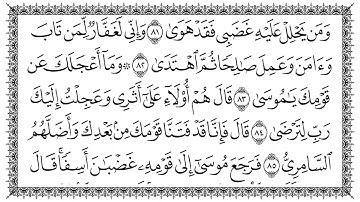 وَمَن يَحْلِلْ عَلَيْهِ غَضَبِي فَقَدْ هَوَىٰ ٨١ وَإِنِّي لَغَفَّارٌ لِّمَن تَابَ
وَءَامَنَ وَعَمِلَ صَٰلِحًا ثُمَّ ٱهْتَدَىٰ ٨٢ ۞ وَمَآ أَعْجَلَكَ عَن
قَوْمِكَ يَٰمُوسَىٰ ٨٣ قَالَ هُمْ أُو۟لَآءِ عَلَىٰٓ أَثَرِي وَعَجِلْتُ إِلَيْكَ
رَبِّ لِتَرْضَىٰ ٨٤ قَالَ فَإِنَّا قَدْ فَتَنَّا قَوْمَكَ مِنۢ بَعْدِكَ وَأَضَلَّهُمُ
ٱلسَّامِرِيُّ ٨٥ فَرَجَعَ مُوسَىٰٓ إِلَىٰ قَوْمِهِۦ غَضْبَٰنَ أَسِفًا ۚ قَالَ